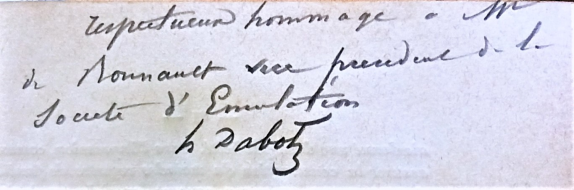 respectueux hommage a Mr
de Bonnault vice president de la
Société d'Emulation
h Dabot